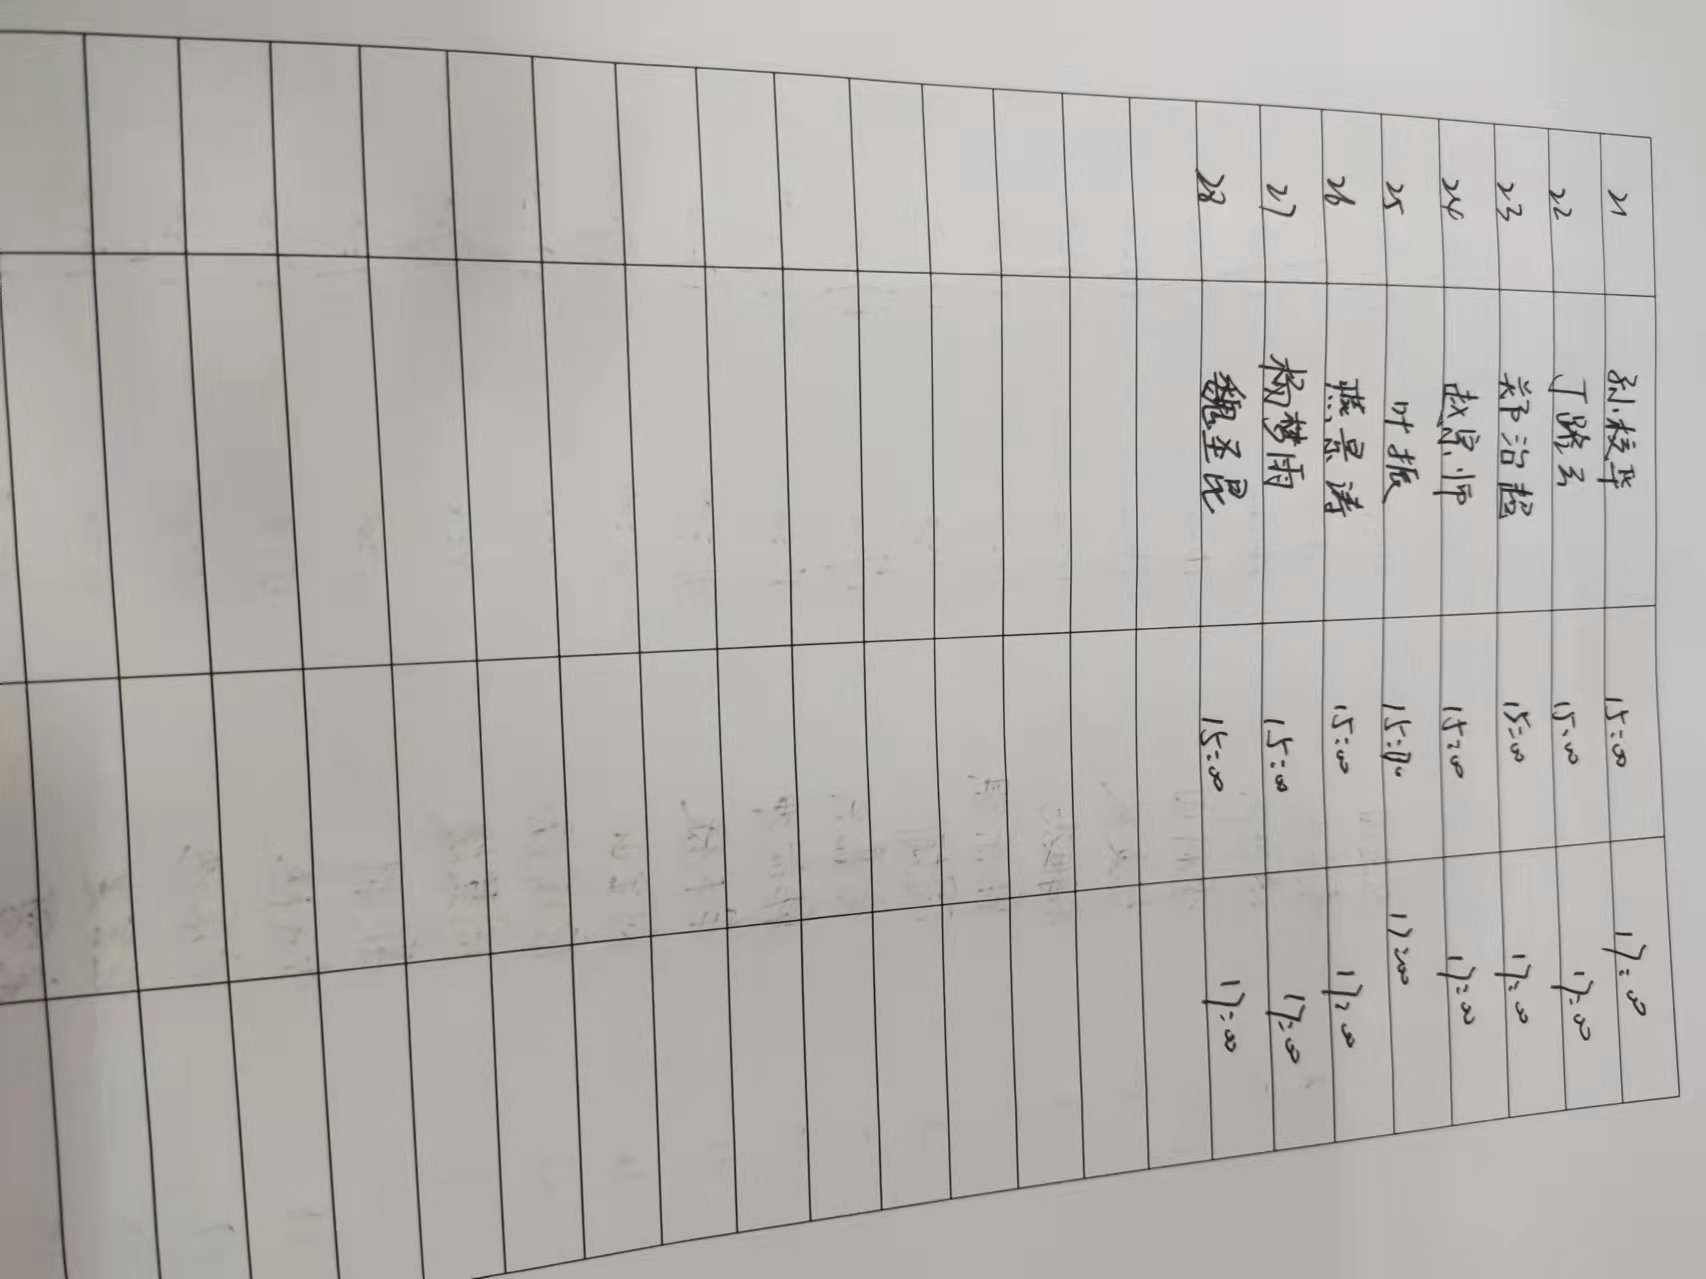 21 孙校华 15:00 17:00
22 丁路云 15:00 17:00
23 郑治超 15:00 17:00
24 赵京师 15:00 17:00
25 叶振 15:00 17:00
26 燕景涛 15:00 17:00
27 杨梦雨 15:00 17:00
28 魏圣昆 15:00 17:00